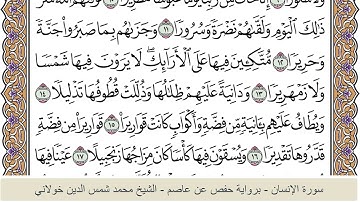 ذَٰلِكَ ٱلْيَوْمِ وَلَقَّىٰهُمْ نَضْرَةً وَسُرُورًا ١١ وَجَزَىٰهُم بِمَا صَبَرُوا۟ جَنَّةً
وَحَرِيرًا ١٢ مُّتَّكِـِٔينَ فِيهَا عَلَى ٱلْأَرَآئِكِ ۖ لَا يَرَوْنَ فِيهَا شَمْسًا
وَلَا زَمْهَرِيرًا ١٣ وَدَانِيَةً عَلَيْهِمْ ظِلَٰلُهَا وَذُلِّلَتْ قُطُوفُهَا تَذْلِيلًا ١٤
وَيُطَافُ عَلَيْهِم بِـَٔانِيَةٍ مِّن فِضَّةٍ وَأَكْوَابٍ كَانَتْ قَوَارِيرَا۠ ١٥ قَوَارِيرَا۟ مِن فِضَّةٍ
قَدَّرُوهَا تَقْدِيرًا ١٦ وَيُسْقَوْنَ فِيهَا كَأْسًا كَانَ مِزَاجُهَا زَنجَبِيلًا ١٧ عَيْنًا فِيهَا
سورة الإنسان - برواية حفص عن عاصم - الشيخ محمد شمس الدين خولاني